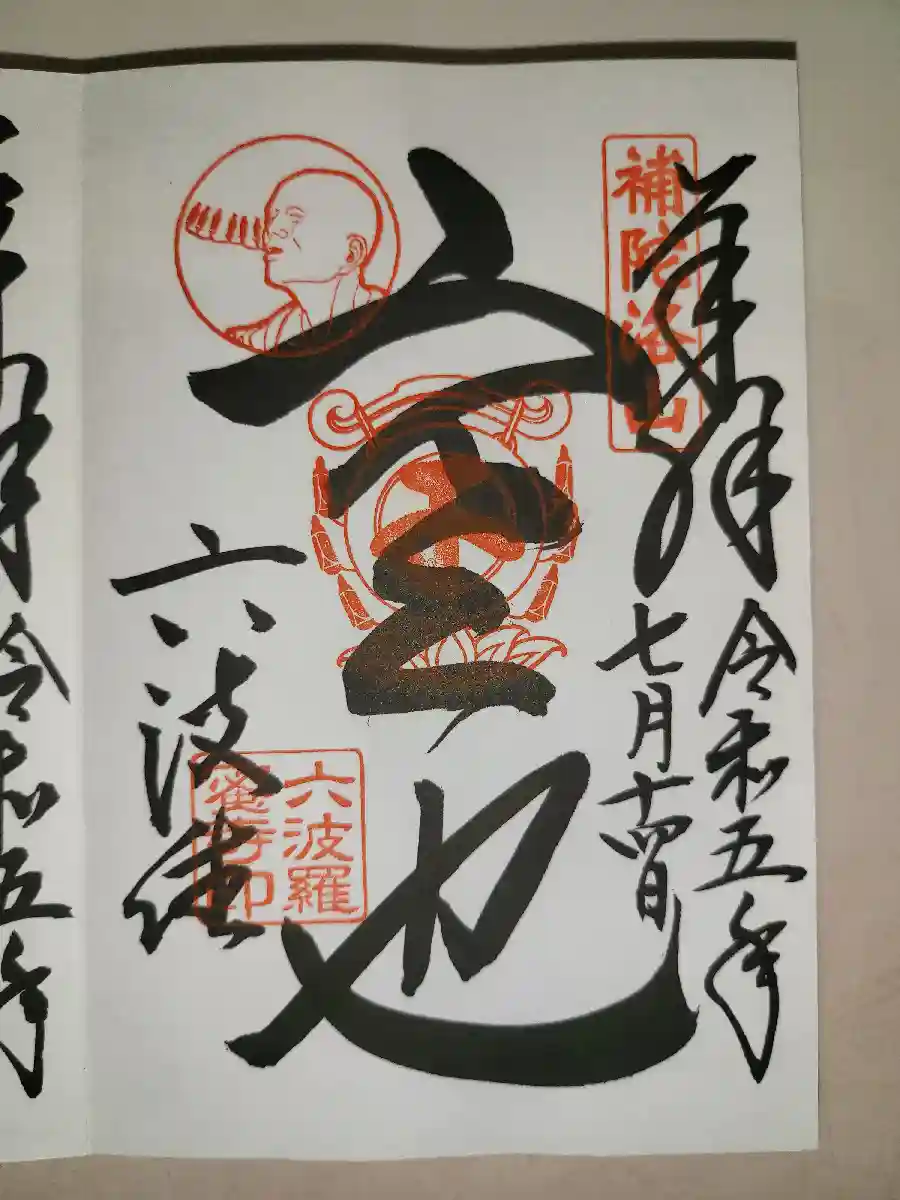 補陀洛山
奉拝 令和五年
七月十四日
空也
六波
六波羅
蜜寺印
拝 令和五年